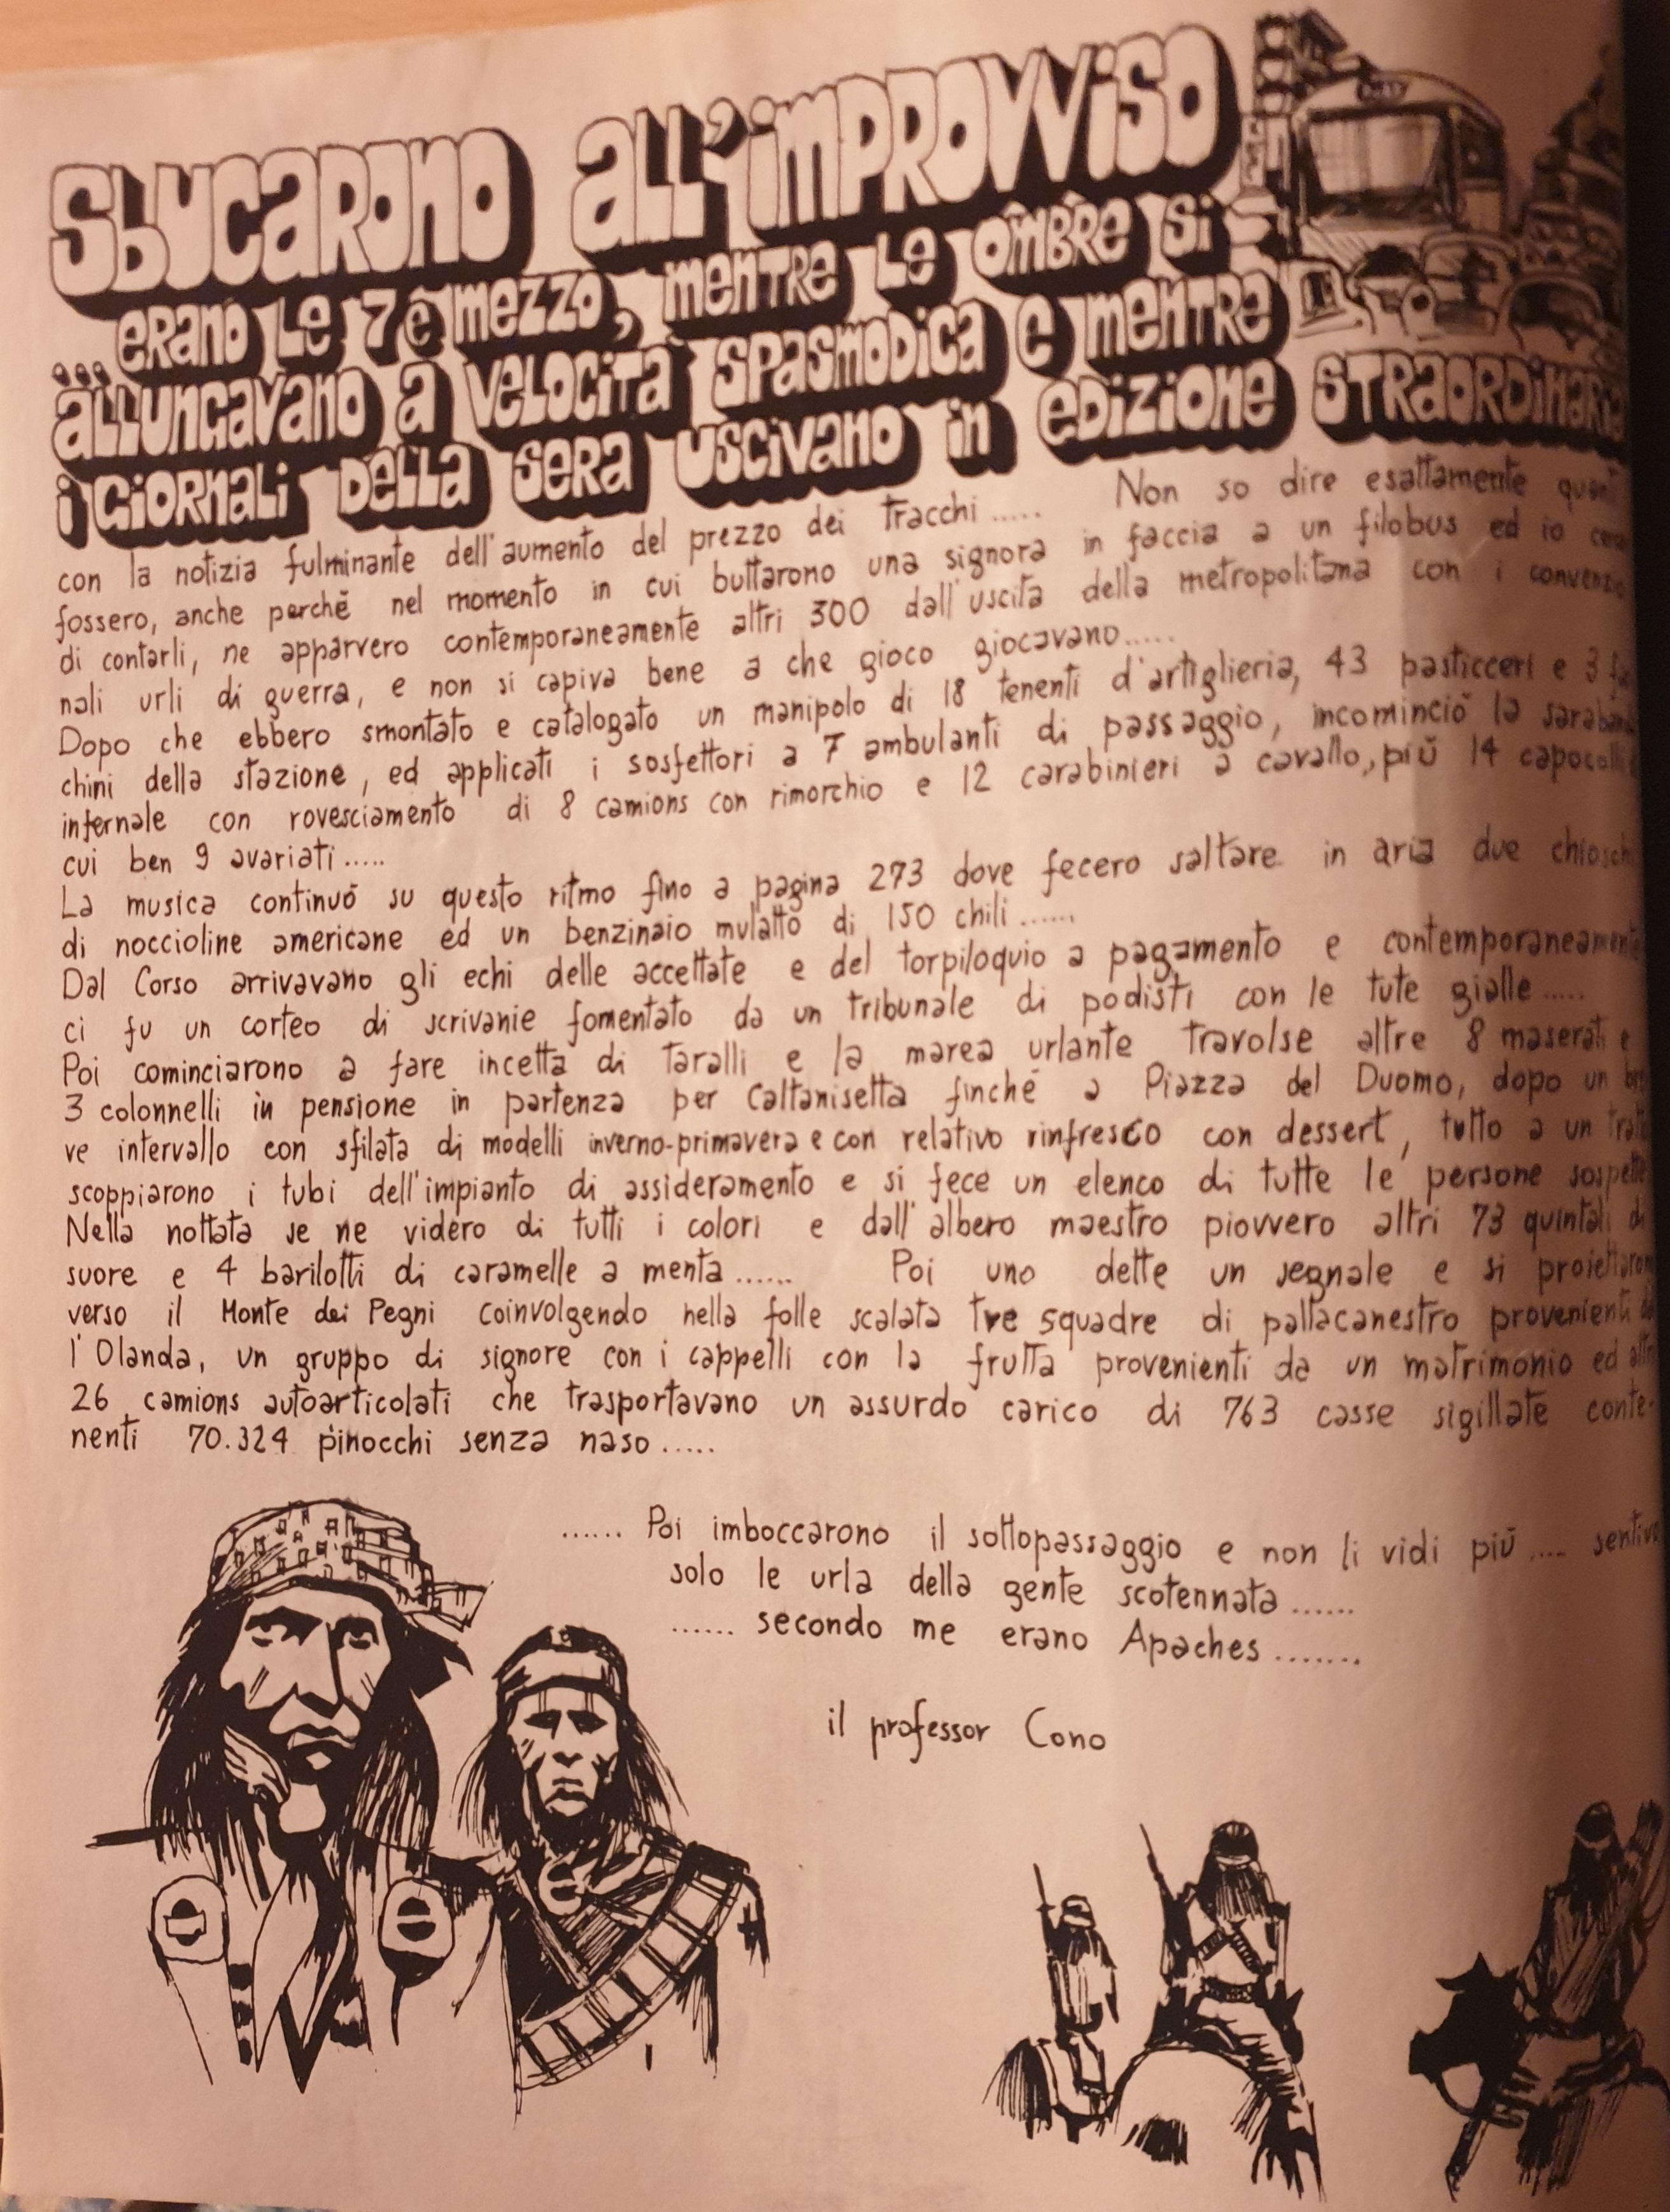 Sbucarono all'improvviso
...erano le 7 e mezzo, mentre le ombre si
allungavano a velocità spasmodica e mentre
i giornali della sera uscivano in edizione straordinaria
con la notizia fulminante dell'aumento del prezzo dei Tracchi ..... Non so dire esattamente
fossero, anche perché nel momento in cui buttarono una signora in faccia a un filobus ed io
di contarli, ne apparvero contemporaneamente altri 300 dall'uscita della metropolitana con i
nali urli di guerra, e non si capiva bene a che gioco giocavano.....
Dopo che ebbero smontato e catalogato un manipolo di 18 tenenti d'artiglieria, 43 pasticceri e 3
chini della stazione, ed applicati i sosfettori a 7 ambulanti di passaggio, incominciò la
infernale con rovesciamento di 8 camions con rimorchio e 12 carabinieri a cavallo, più 14
cui ben 9 avariati.....
La musica continuò su questo ritmo fino a pagina 273 dove fecero saltare in aria due
di noccioline americane ed un benzinaio mulatto di 150 chili......
Dal Corso arrivavano gli echi delle accettate e del torpiloquio a pagamento e contemporaneamente
ci fu un corteo di scrivanie fomentato da un tribunale di podisti con le tute gialle.....
Poi cominciarono a fare incetta di taralli e la marea urlante travolse altre 8 maserati e
3 colonnelli in pensione in partenza per Caltanisetta finché a Piazza del Duomo, dopo un bre
ve intervallo con sfilata di modelli inverno-primavera e con relativo rinfresco con dessert, tutto a un
scoppiarono i tubi dell'impianto di assideramento e si fece un elenco di tutte le persone sospette
Nella nottata se ne videro di tutti i colori e dall'albero maestro piovvero altri 73 quintali di
suore e 4 barilotti di caramelle a menta...... Poi uno dette un segnale e si proiettarono
verso il Monte dei Pegni coinvolgendo nella folle scalata tre squadre di pallacanestro provenienti
l'Olanda, un gruppo di signore con i cappelli con la frutta provenienti da un matrimonio ed
26 camions autoarticolati che trasportavano un assurdo carico di 763 casse sigillate conte-
nenti 70.324 pinocchi senza naso.....
...... Poi imboccarono il sottopassaggio e non li vidi più .... sentivo
solo le urla della gente scotennata......
...... secondo me erano Apaches.......
il professor Cono